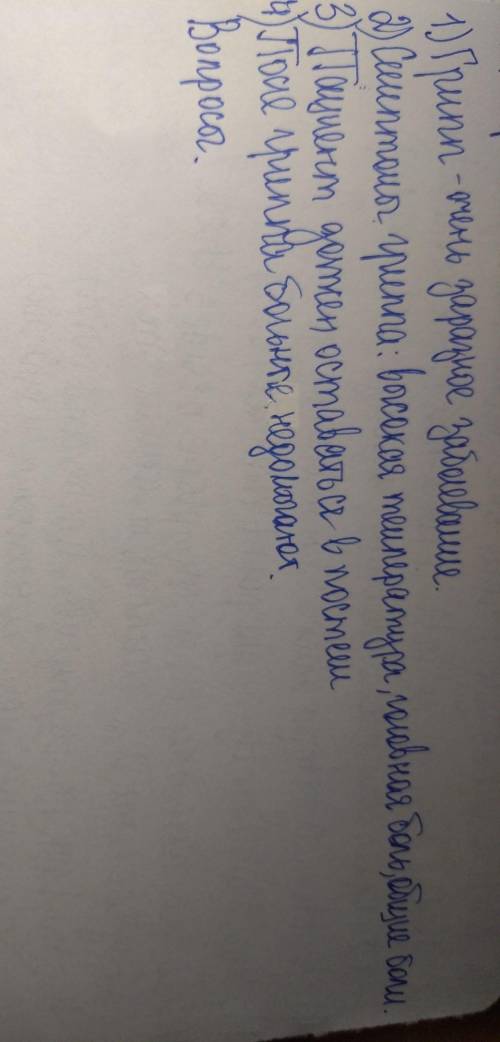 1) Грипп - очень заразное заболевание.
2) Симптомы гриппа: высокая температура, головная боль, общие боли.
3) Пациент должен оставаться в постели
4) После гриппа больные недомогают.
Вопросы.